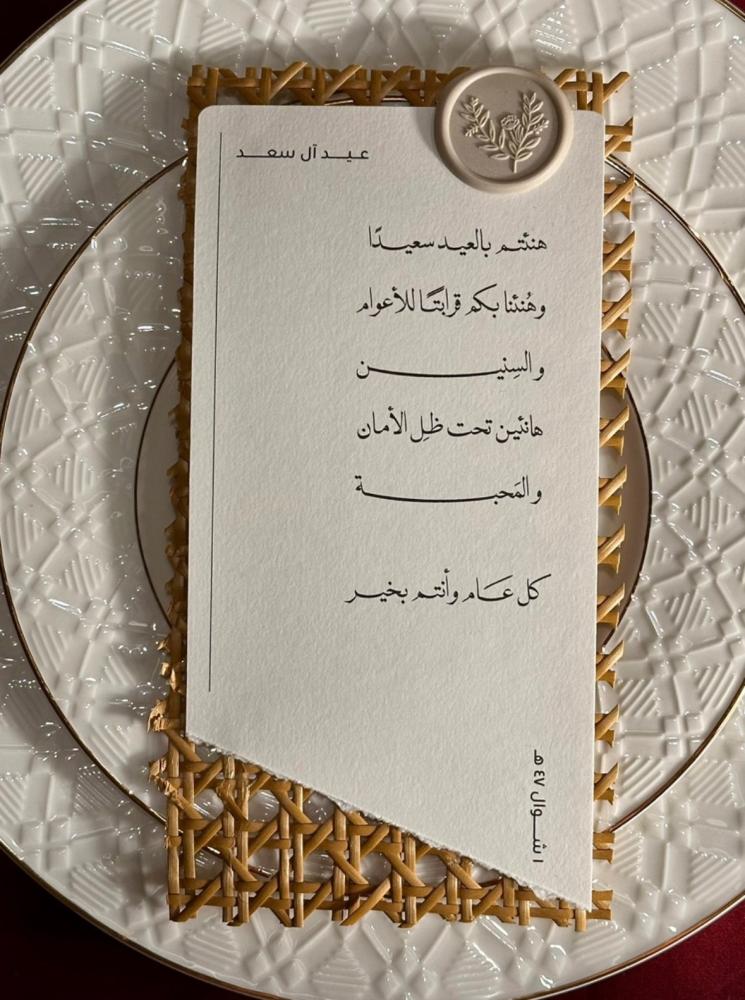 عيد آل سعد
هنئتم بالعيد سعيدًا
وهُنئنا بكم قرابتًا للأعوام
والسِنين
هانئين تحت ظِل الأمان
والمَحبة
كل عَام وأنتم بخير
١ شوال ٤٧ هـ